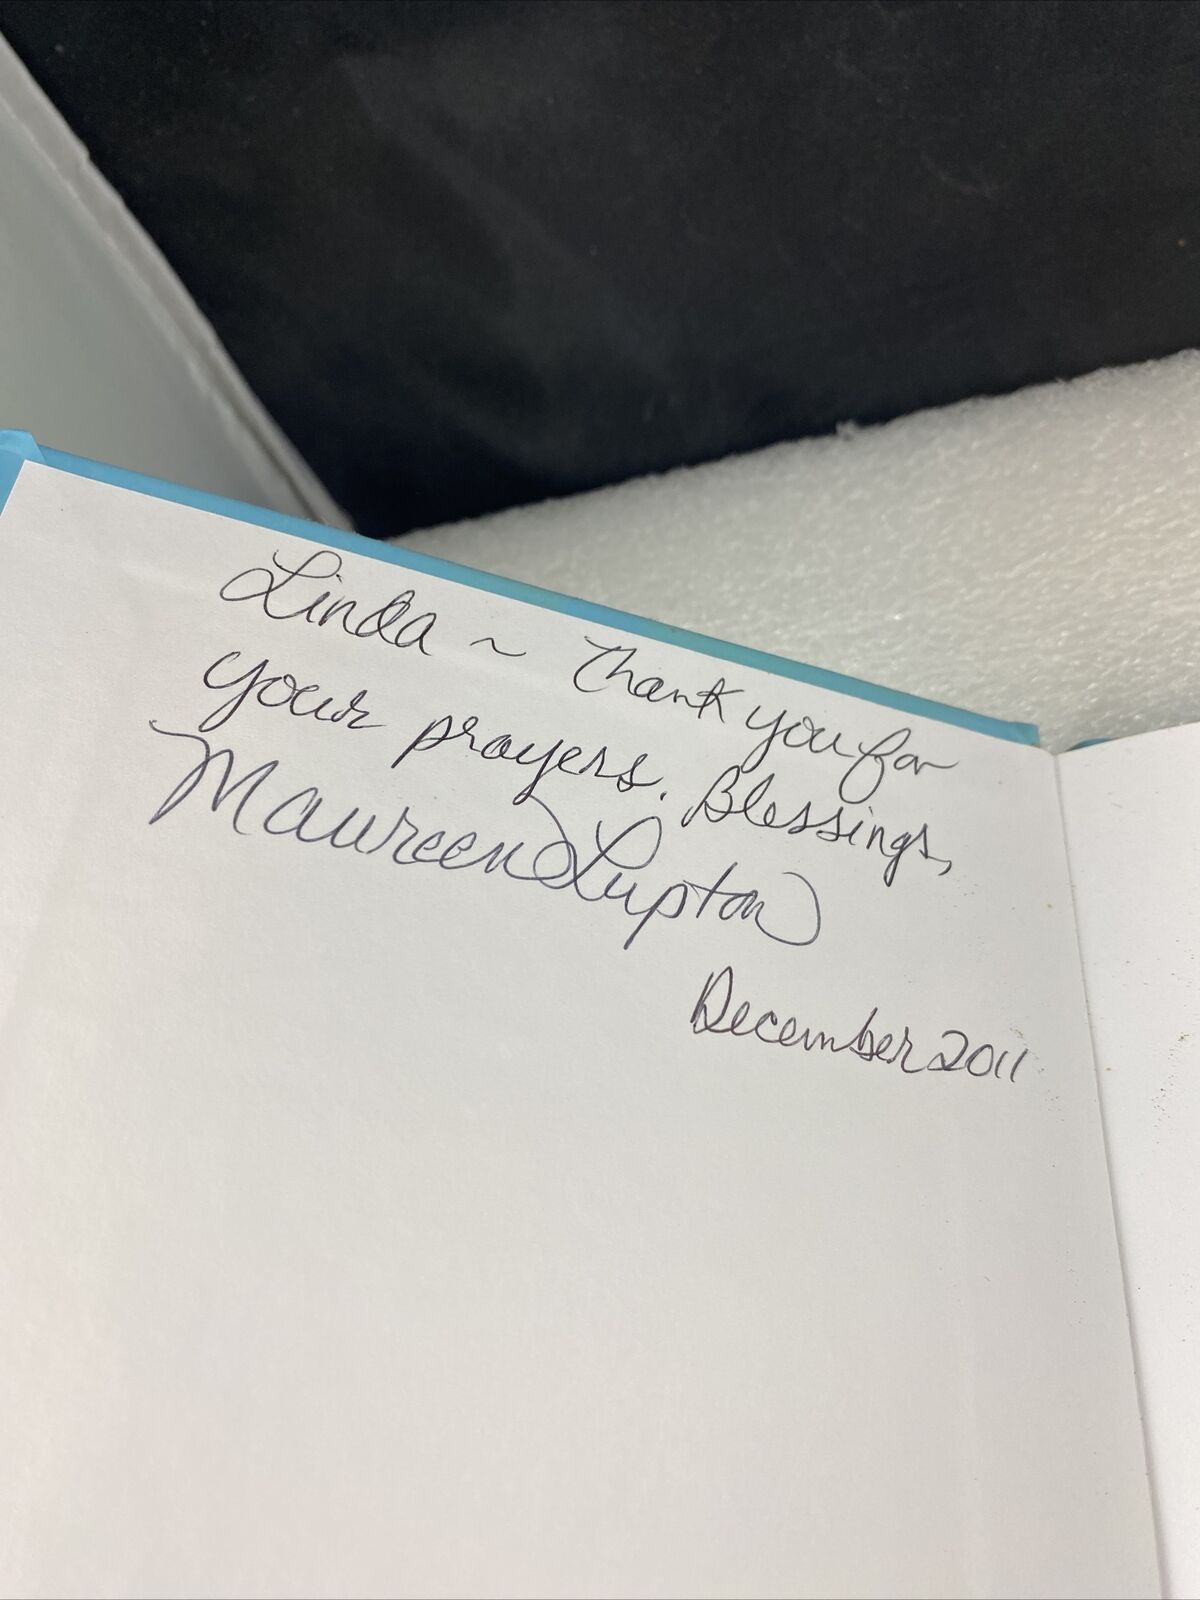 Linda ~ Thank you for
your prayers. Blessings,
Maureen Lupton
December 2011